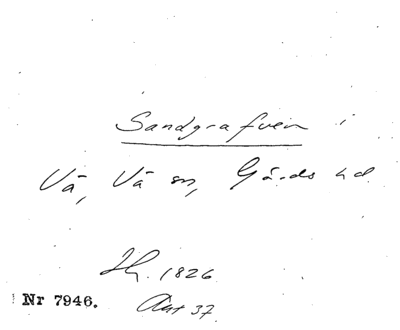 Sandgrafven i
Vä, Vä sn, Gärds hd
Hh. 1826
Nr 7946. Ant 37